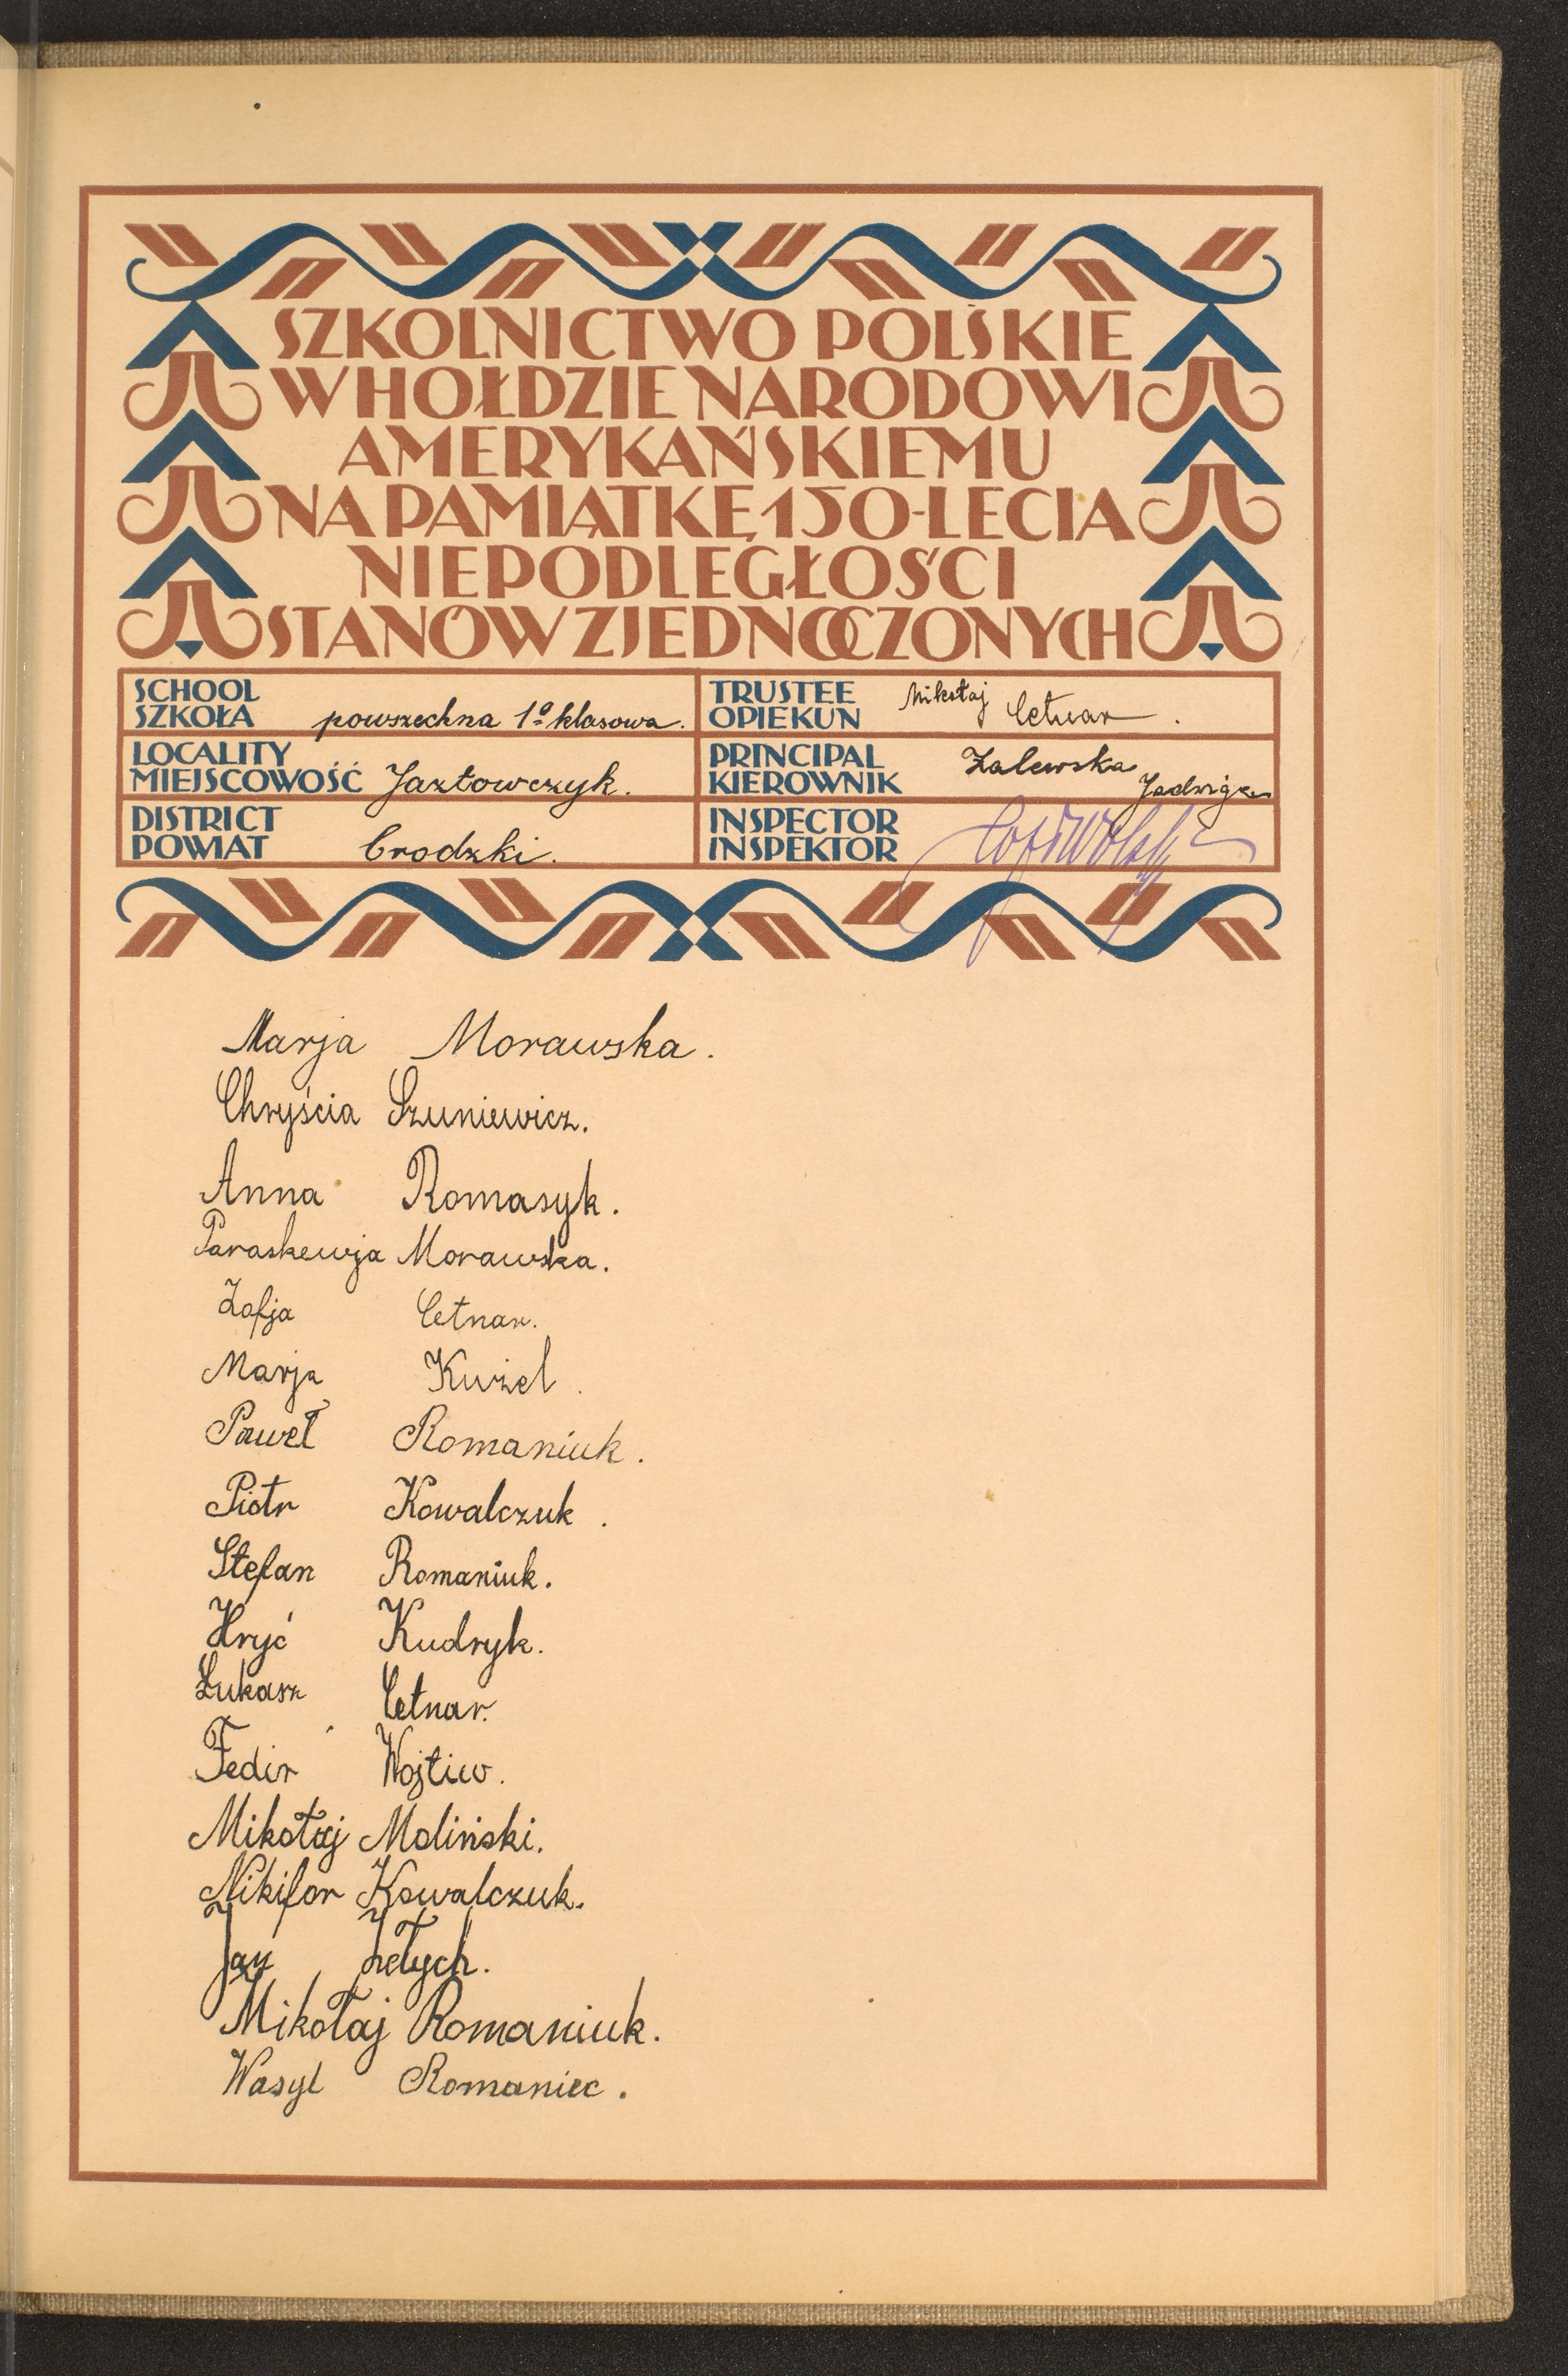 SZKOLNICTWO POLSKIE
W HOŁDZIE NARODOWI
AMERYKAŃSKIEMU
NA PAMIĄTKĘ 150-LECIA
NIEPODLEGŁOŚCI
STANÓW ZJEDNOCZONYCH
SCHOOL
SZKOŁA powszechna 1º klasowa.
TRUSTEE
OPIEKUN Mikołaj Cetnar.
LOCALITY
MIEJSCOWOŚĆ Jazłowczyk.
PRINCIPAL
KIEROWNIK Zalewska Jadwiga
DISTRICT
POWIAT Brodzki.
INSPECTOR
INSPEKTOR
Marja Morawska.
Chryścia Szuniewicz.
Anna Romasyk.
Paraskewja Morawska.
Zofja Cetnar.
Marja Kużel.
Paweł Romaniuk.
Piotr Kowalczuk.
Stefan Romaniuk.
Hryć Kudryk.
Łukasz Cetnar.
Fedir Wojtiw.
Mikołaj Moliński.
Nikifor Kowalczuk.
Jan
Mikołaj Romaniuk.
Wasyl Romaniec.